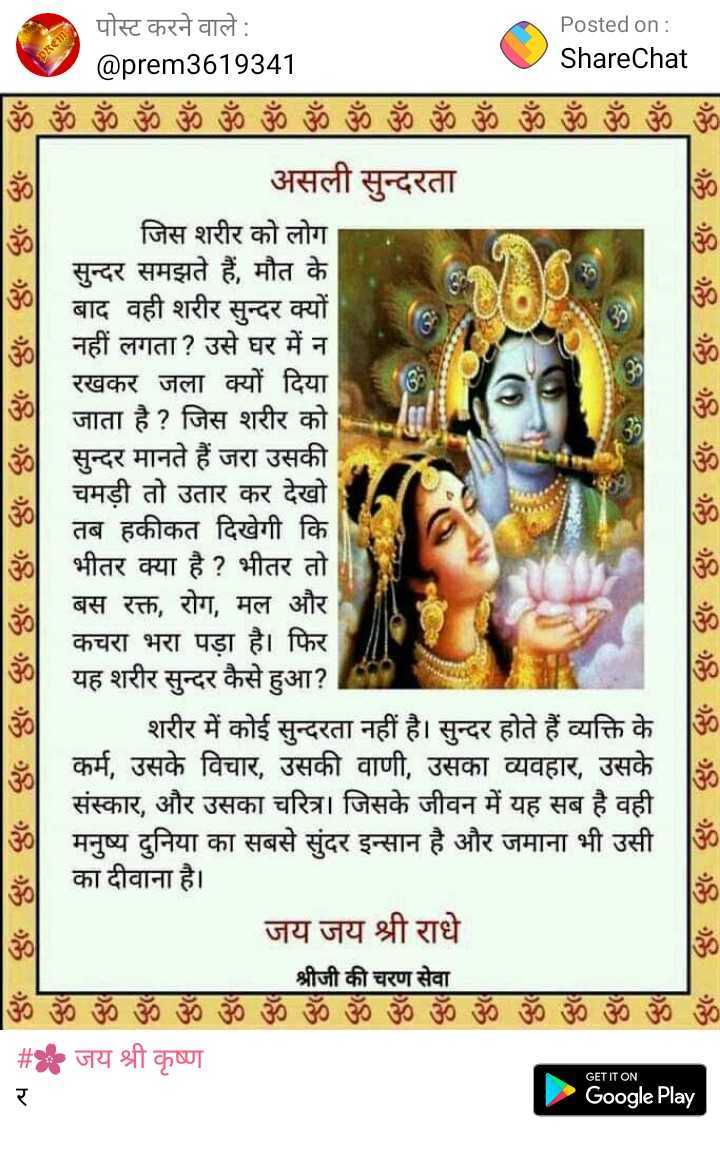 पोस्ट करने वाले :
@prem3619341
Posted on :
ShareChat
PREM
ॐ ॐ ॐ ॐ ॐ ॐ ॐ ॐ ॐ ॐ ॐ ॐ ॐ ॐ ॐ ॐ ॐ
असली सुन्दरता
जिस शरीर को लोग
सुन्दर समझते हैं, मौत के
बाद वही शरीर सुन्दर क्यों
नहीं लगता? उसे घर में न
रखकर जला क्यों दिया
जाता है? जिस शरीर को
सुन्दर मानते हैं जरा उसकी
चमड़ी तो उतार कर देखो
तब हकीकत दिखेगी कि
भीतर क्या है? भीतर तो
बस रक्त, रोग, मल और
कचरा भरा पड़ा है। फिर
यह शरीर सुन्दर कैसे हुआ?
शरीर में कोई सुन्दरता नहीं है। सुन्दर होते हैं व्यक्ति के
कर्म, उसके विचार, उसकी वाणी, उसका व्यवहार, उसके
संस्कार, और उसका चरित्र। जिसके जीवन में यह सब है वही
मनुष्य दुनिया का सबसे सुंदर इन्सान है और जमाना भी उसी
का दीवाना है।
जय जय श्री राधे
श्रीजी की चरण सेवा
ॐ ॐ ॐ ॐ ॐ ॐ ॐ ॐ ॐ ॐ ॐ ॐ ॐ ॐ ॐ ॐ ॐ
#🌺 जय श्री कृष्ण
र
GET IT ON
Google Play